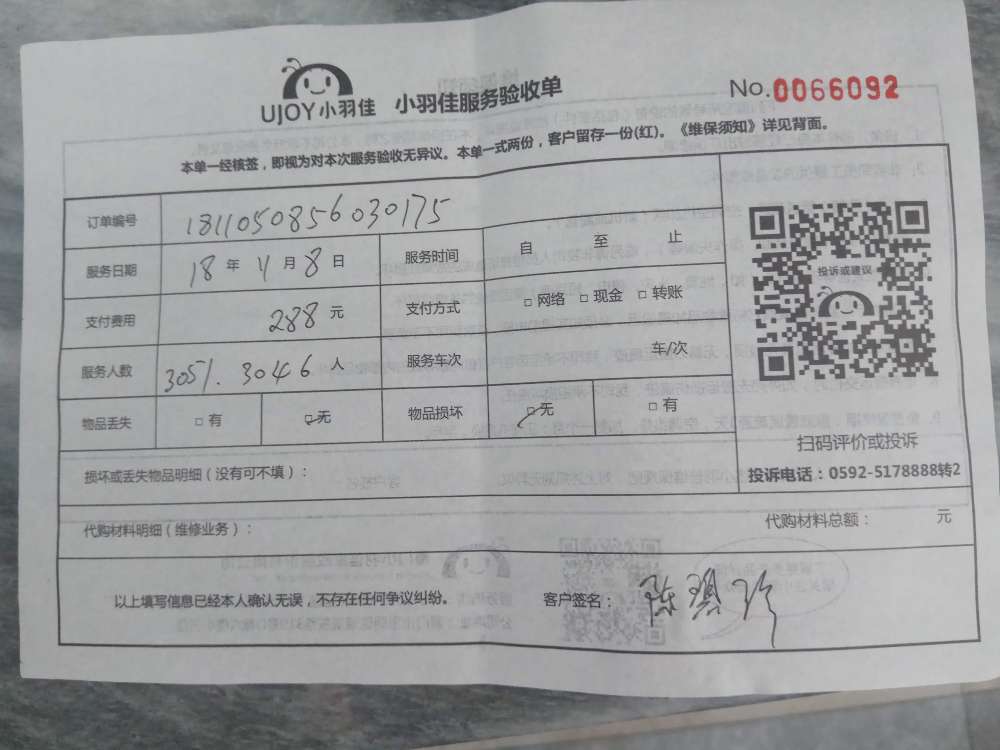 UJOY小羽佳 小羽佳服务验收单 No.0066092
本单一经核签，即视为对本次服务验收无异议。本单一式两份，客户留存一份(红)。《维保须知》详见背面。
订单编号 1811050856030175
服务日期 18 年 11 月 8 日 服务时间 自 至 止
支付费用 288 元 支付方式 □ 网络 □ 现金 □ 转账
服务人数 3051. 3046 人 服务车次 车/次
物品丢失 □ 有 □ 无 物品损坏 □ 无 □ 有
投诉或建议
扫码评价或投诉
投诉电话：0592-5178888转2
损坏或丢失物品明细（没有可不填）：
代购材料明细（维修业务）： 代购材料总额： 元
以上填写信息已经本人确认无误，不存在任何争议纠纷。 客户签名： 陈碧珍